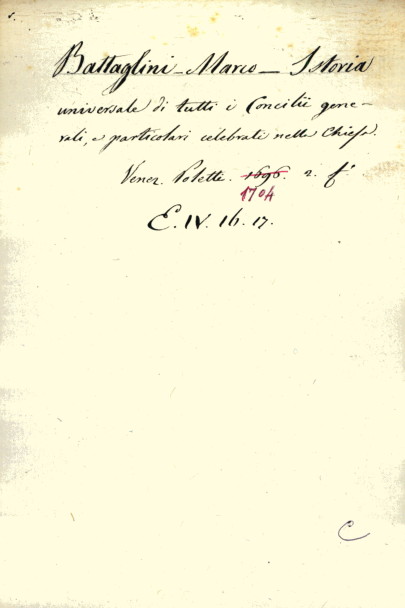 Battaglini - Marco - Istoria
universale di tutti i Concilii gene-
rali, e particolari celebrati nella Chiesa.
Venez. Poletti. 1696. 2. f°
1704
E. IV. 16. 17.
C